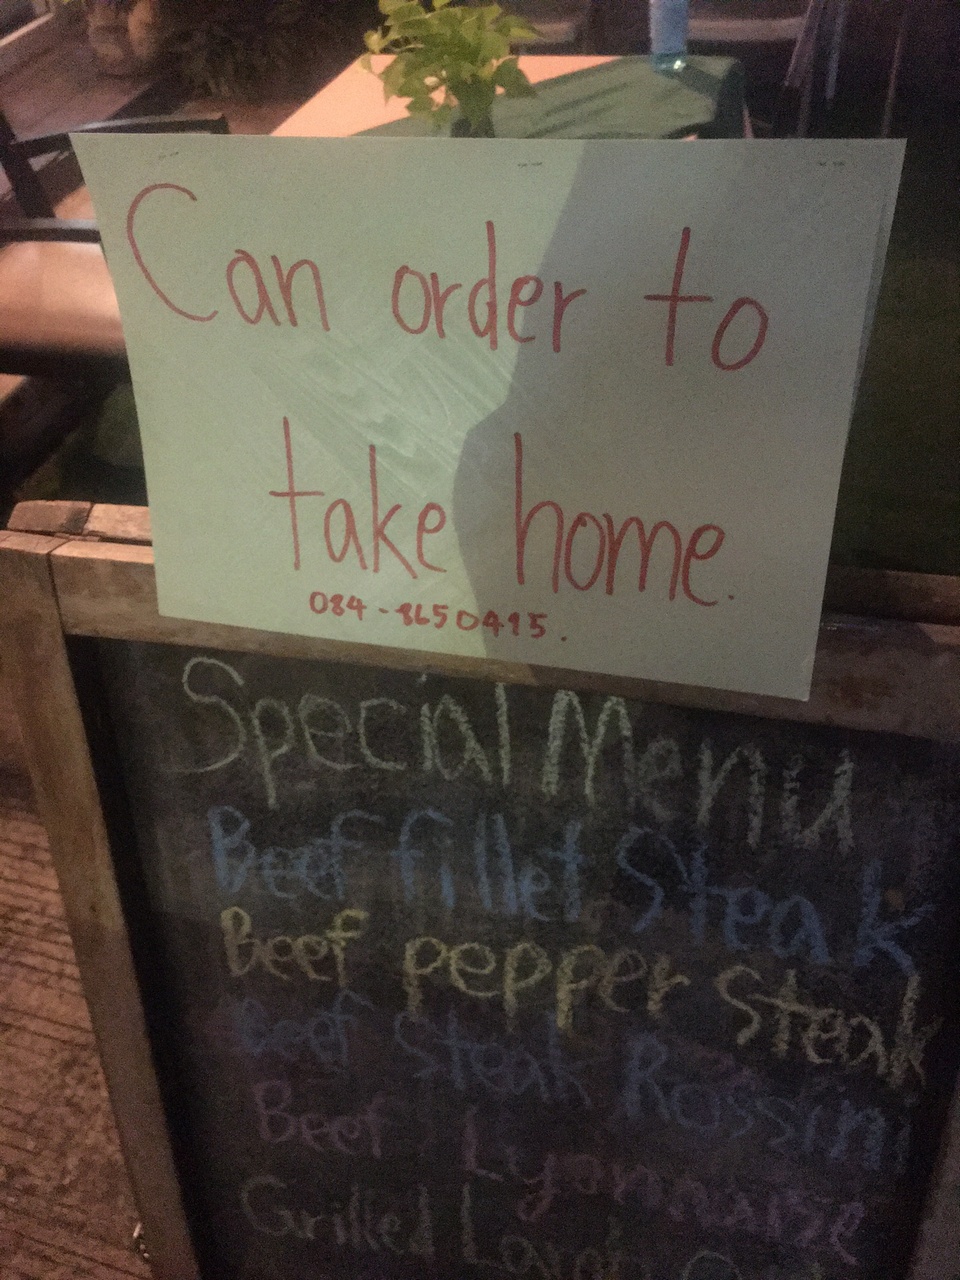 Can order to
take home.
084-8650495.
Special Menu
Beef fillet Steak
Beef pepper Steak
Beef Steak Rossini
Beef Lyonnaise
Grilled